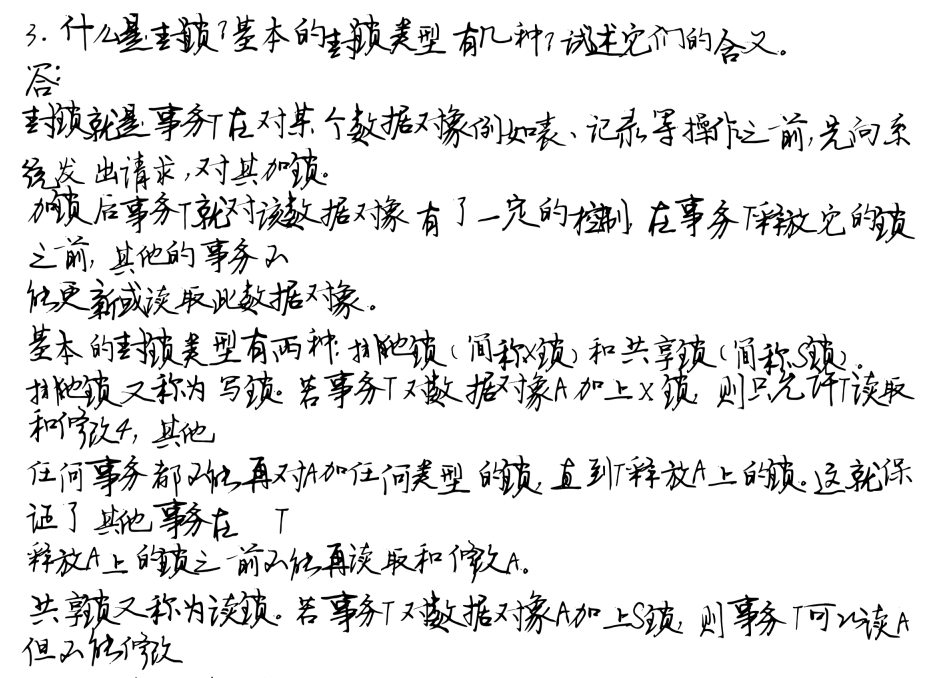 3. 什么是封锁?基本的封锁类型有几种?试述它们的含义。
答:
封锁就是事务T在对某个数据对象例如表、记录等操作之前,先向系
统发出请求,对其加锁。
加锁后事务T就对该数据对象有了一定的控制,在事务T释放它的锁
之前,其他的事务不
能更新或读取此数据对象。
基本的封锁类型有两种:排他锁(简称X锁)和共享锁(简称S锁)。
排他锁又称为写锁。若事务T对数据对象A加上X锁,则只允许T读取
和修改A,其他
任何事务都不能再对A加任何类型的锁,直到T释放A上的锁。这就保
证了其他事务在 T
释放A上的锁之前不能再读取和修改A。
共享锁又称为读锁。若事务T对数据对象A加上S锁,则事务T可以读A
但不能修改